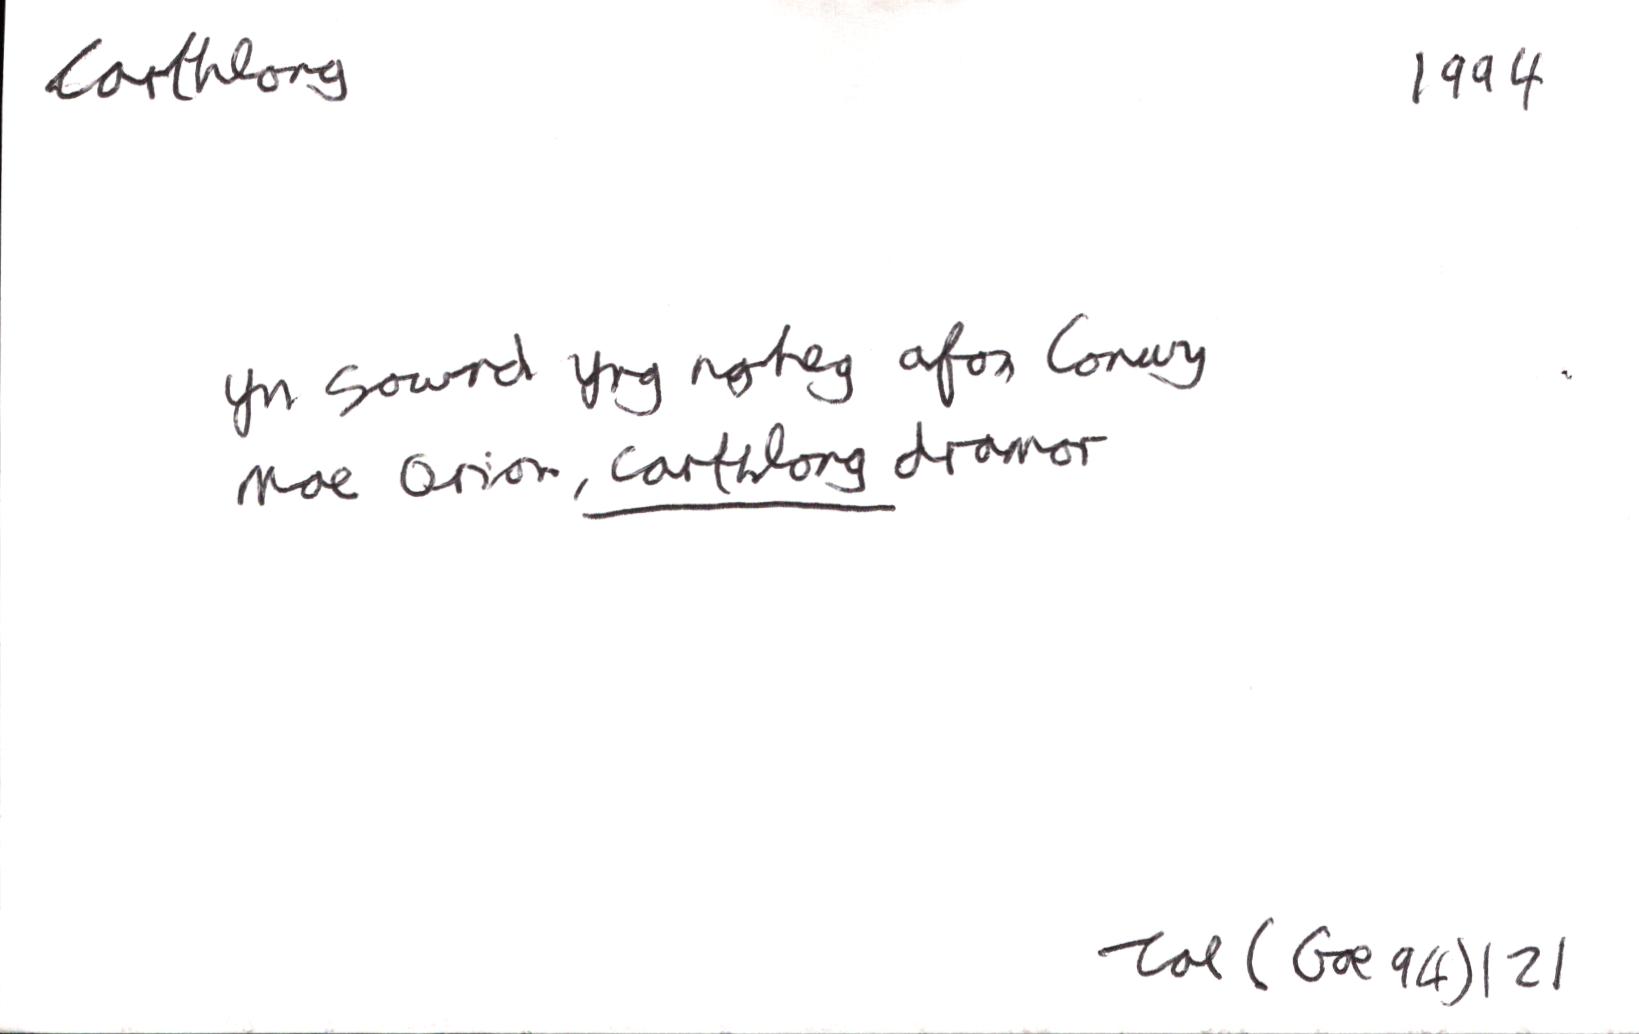 Carthlong 1994
Yn sownd yng ngheg afon Conwy
Mae Orion, carthlong dramor
Tal (Gae 94) 121